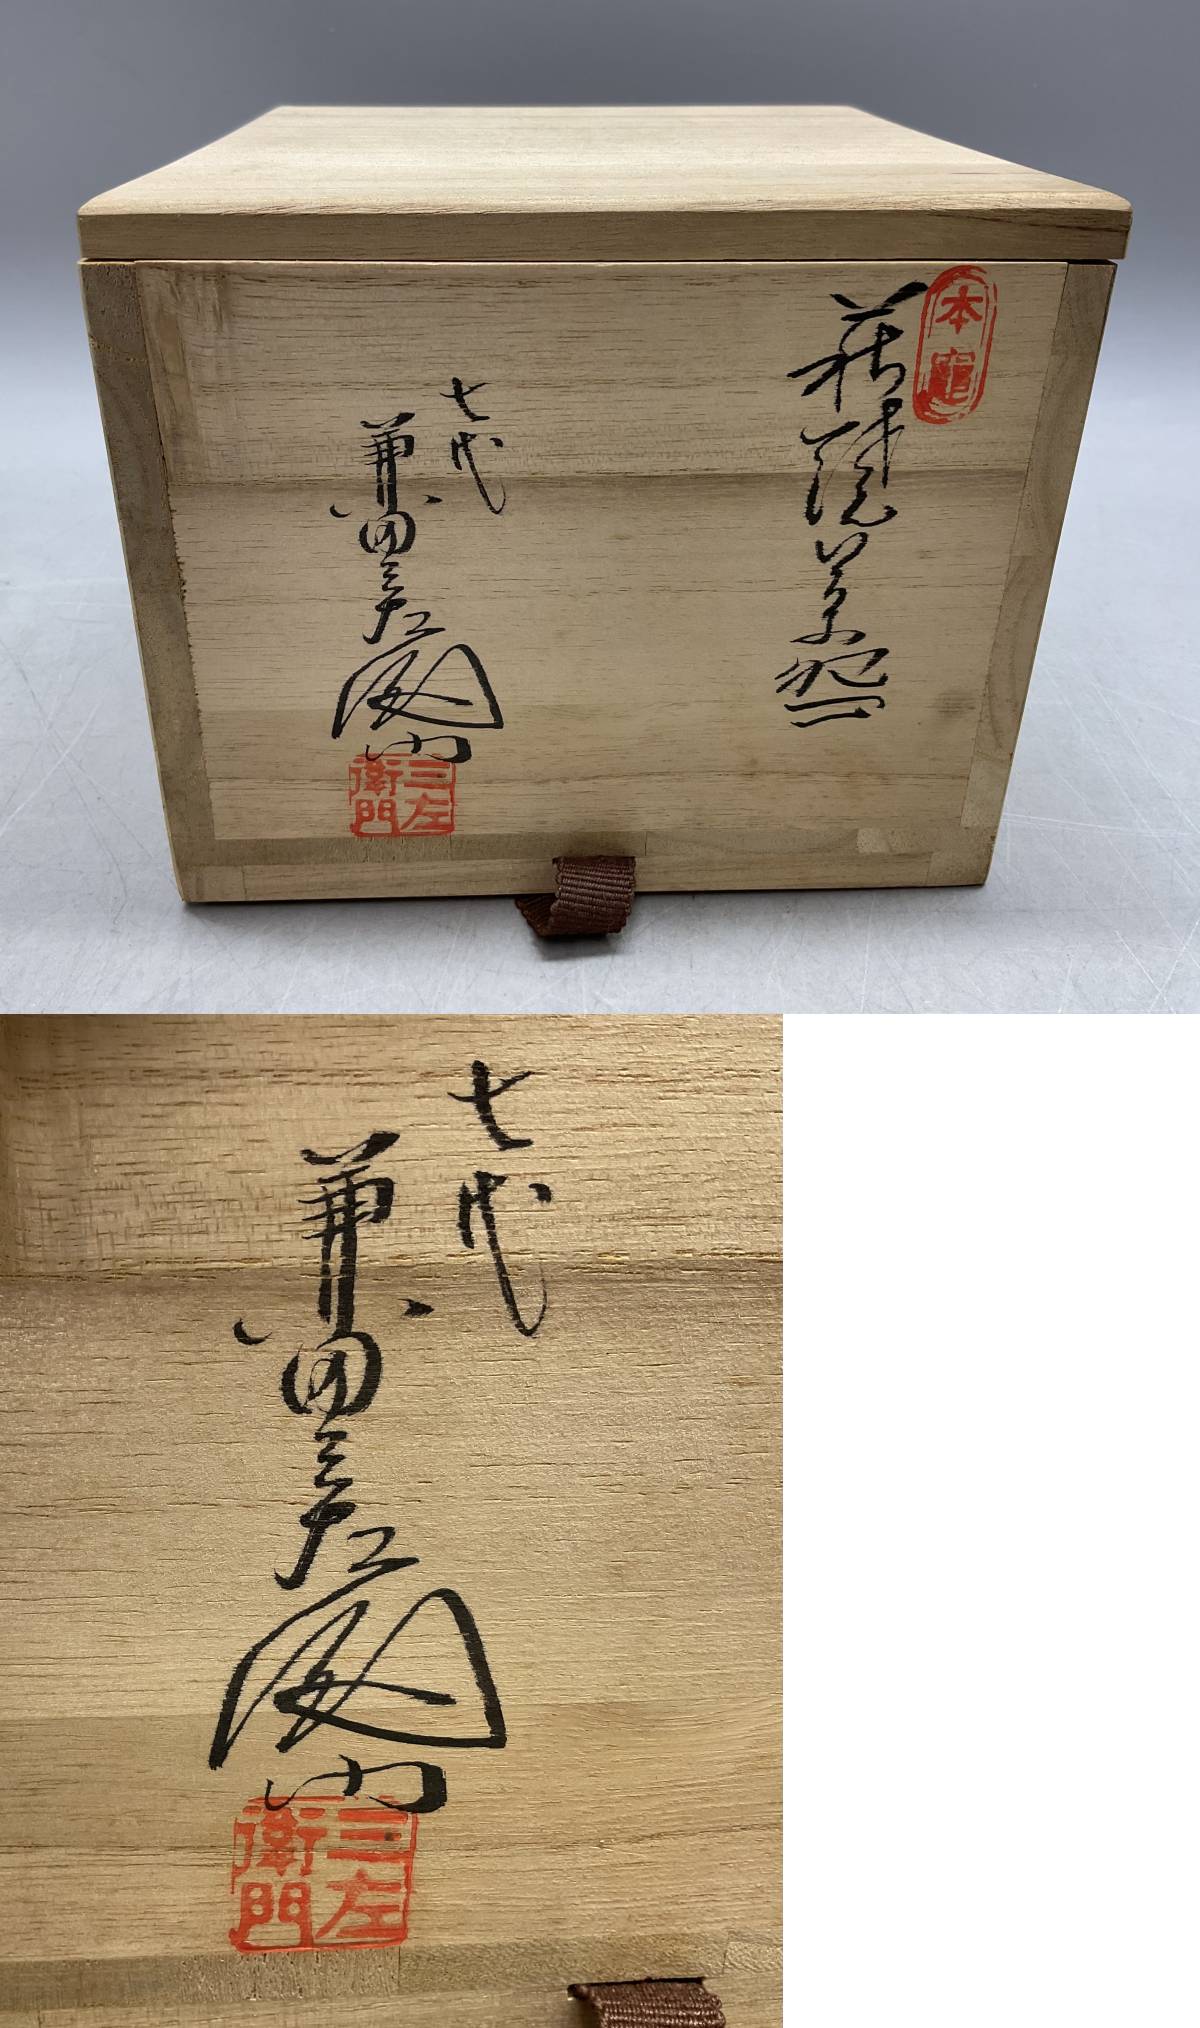 本窯
萩焼茶碗
七代
兼田三左衛門
三左衛門
七代
兼田三左衛門
三左衛門